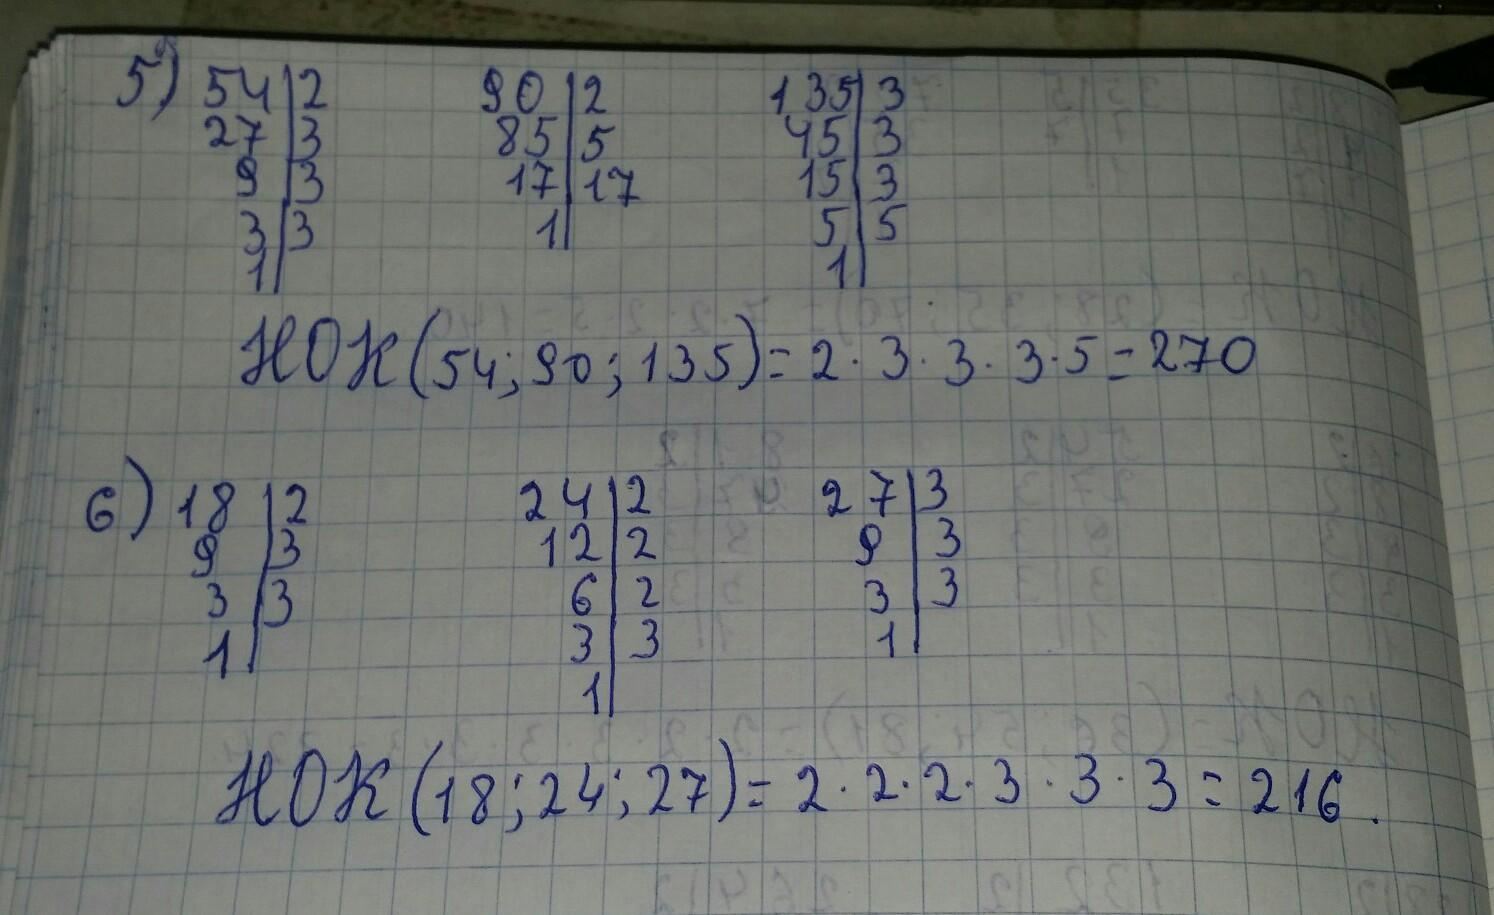 5) 54|2 90|2 135|3
27|3 85|5 45|3
9|3 17|17 15|3
3|3 1| 5|5
1| 1|
НОК(54; 90; 135) = 2 · 3 · 3 · 3 · 5 = 270
6) 18|2 24|2 27|3
9|3 12|2 9|3
3|3 6|2 3|3
1| 3|3 1|
1|
НОК(18; 24; 27) = 2 · 2 · 2 · 3 · 3 · 3 = 216.